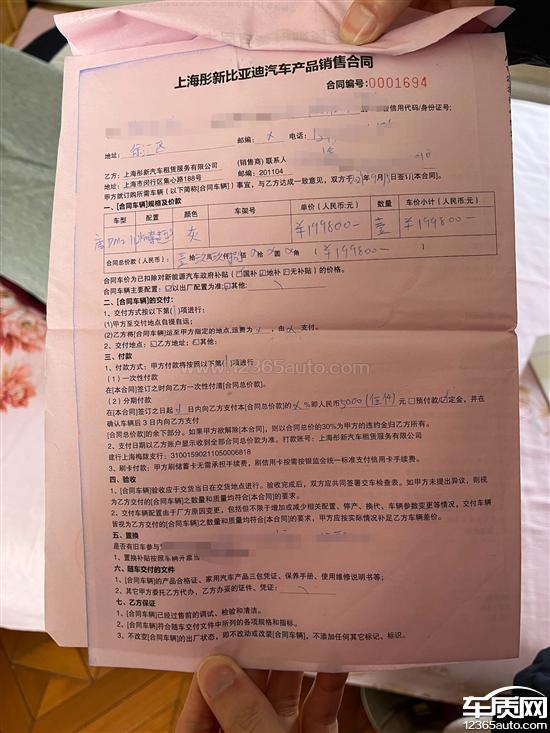 上海彤新比亚迪汽车产品销售合同
合同编号:0001694
信用代码/身份证号;
地址: 徐汇区 邮编: 电话:
乙方:上海彤新汽车租赁服务有限公司 (销售商)联系人
地址:上海市闵行区集心路188号 邮编:201104
甲方就订购所需车辆(以下简称[合同车辆])事宜,与乙方达成一致意见,双方于 年 月 日签订[本合同]。
一、[合同车辆]规格及价款
车型 配置 颜色 车架号 单价(人民币:元) 数量 车价小计(人民币:元)
唐DMi 灰 ¥199800- 壹 ¥199800-
合同总价款(人民币): 壹拾玖万玖仟捌佰 拾 圆 角 (¥199800-)
合同车价为已扣除对新能源汽车政府补贴(□国补 地补 无补贴)的价格。
合同车辆主要配置:以出厂配置为准;其他:
二、[合同车辆]的交付:
1、交付方式按以下第(1)项进行:
(1)甲方至交付地点自提自运;
(2)乙方将[合同车辆]运至甲方指定的地点,运费为 ,由 支付。
2、交付地点:乙方地址;□其他:
三、付款
1、付款方式:甲方付款将按照以下第(1)项进行
(1)一次性付款
在[本合同]签订之时向乙方一次性付清[合同总价款]。
(2)分期付款
在[本合同]签订之日起 日内向乙方支付本[合同总价款]的 %即人民币5000(伍仟)元□预付款/定金,并在
确认车辆后3日内向乙方支付
[合同总价款]的余下部分。如果甲方欲解除[本合同],则以合同总价的30%为甲方的违约金归乙方所有。
2、支付日期以乙方账户显示收到全部合同总价款为准。打款账号:上海彤新汽车租赁服务有限公司
建行上海梅陇支行:31001590211050006818
3、刷卡付款:甲方刷储蓄卡无需承担手续费,刷信用卡按需按银监会统一标准支付信用卡手续费。
四、验收
1、[合同车辆]验收应于交货当日在交货地点进行。验收完成后,双方应共同签署交车检查表。如甲方未提出异议,则视
为乙方交付的[合同车辆]之数量和质量均符合[本合同]的要求。
2、交付车辆配置由于厂方原因变更,包括但不限于增加或减少相关配置、停产、换代、车辆参数变更等情况,交付车辆
皆视为乙方交付的[合同车辆]之数量和质量均符合[本合同]的要求,甲方应按实际情况补足乙方车辆差价。
五、置换
是否有旧车参与
1、置换补贴按照车辆开票当
六、随车交付的文件
1、[合同车辆]的产品合格证、家用汽车产品三包凭证、保养手册、使用维修说明书等;
2、其它甲方委托乙方代办,乙方办妥的证件、凭证:
七、乙方保证
1、[合同车辆]已经过售前的调试、检验和清洁。
2、[合同车辆]符合随车交付文件中所列的各项规格和指标。
3、不改变[合同车辆]的出厂状态,即不改动或改装[合同车辆],不添加任何其它标记、标识。
www.12365auto.com
车质网
12365auto.com